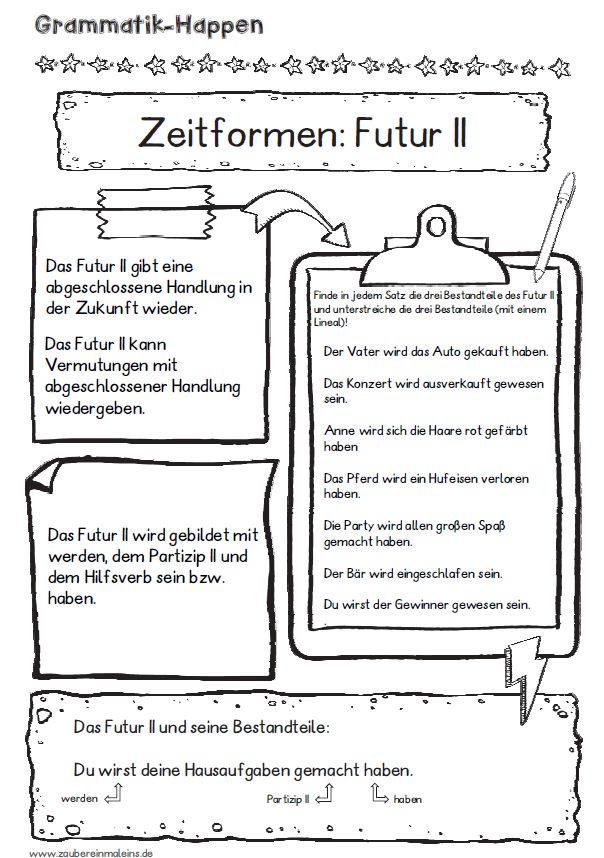 Grammatik-Happen
Zeitformen: Futur II
Das Futur II gibt eine
abgeschlossene Handlung in
der Zukunft wieder.
Das Futur II kann
Vermutungen mit
abgeschlossener Handlung
wiedergeben.
Finde in jedem Satz die drei Bestandteile des Futur II
und unterstreiche die drei Bestandteile (mit einem
Lineal)!
Der Vater wird das Auto gekauft haben.
Das Konzert wird ausverkauft gewesen
sein.
Anne wird sich die Haare rot gefärbt
haben
Das Pferd wird ein Hufeisen verloren
haben.
Die Party wird allen großen Spaß
gemacht haben.
Der Bär wird eingeschlafen sein.
Du wirst der Gewinner gewesen sein.
Das Futur II wird gebildet mit
werden, dem Partizip II und
dem Hilfsverb sein bzw.
haben.
Das Futur II und seine Bestandteile:
Du wirst deine Hausaufgaben gemacht haben.
werden Partizip II haben
www.zaubereinmaleins.de